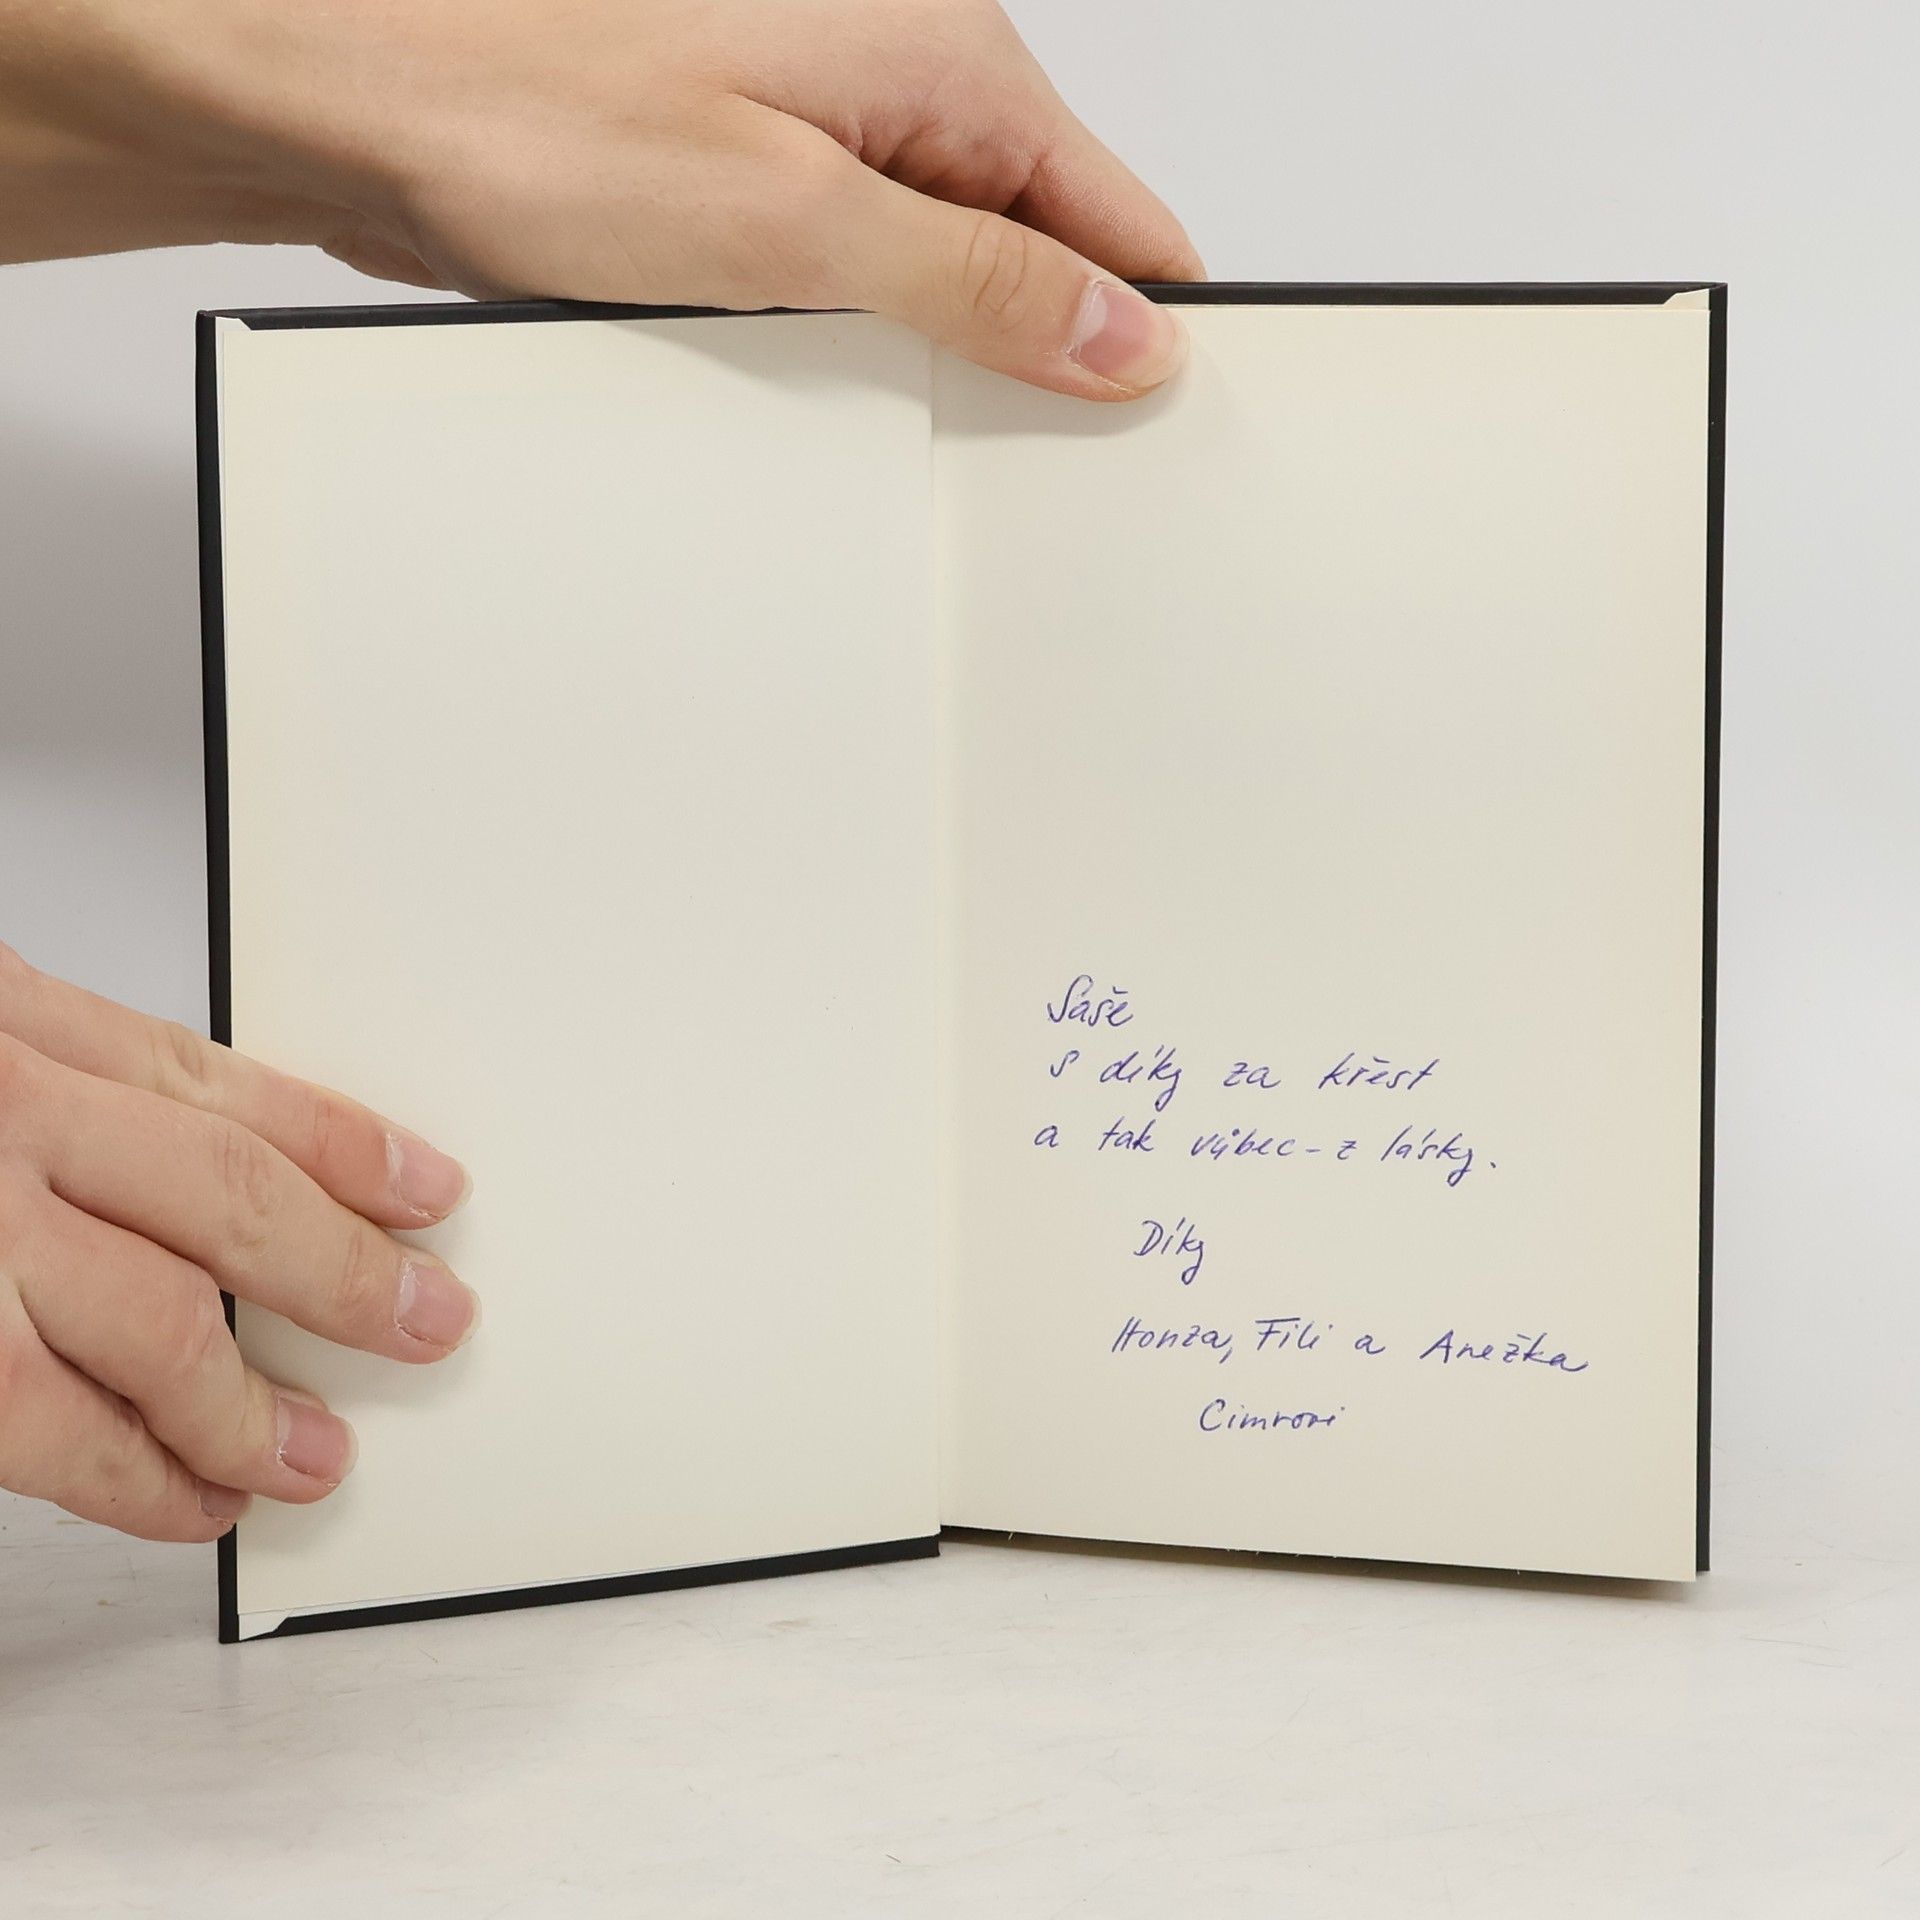 Saše
s díky za křest
a tak vůbec - z lásky.
Díky
Honza, Fili a Anežka
Cimrovi